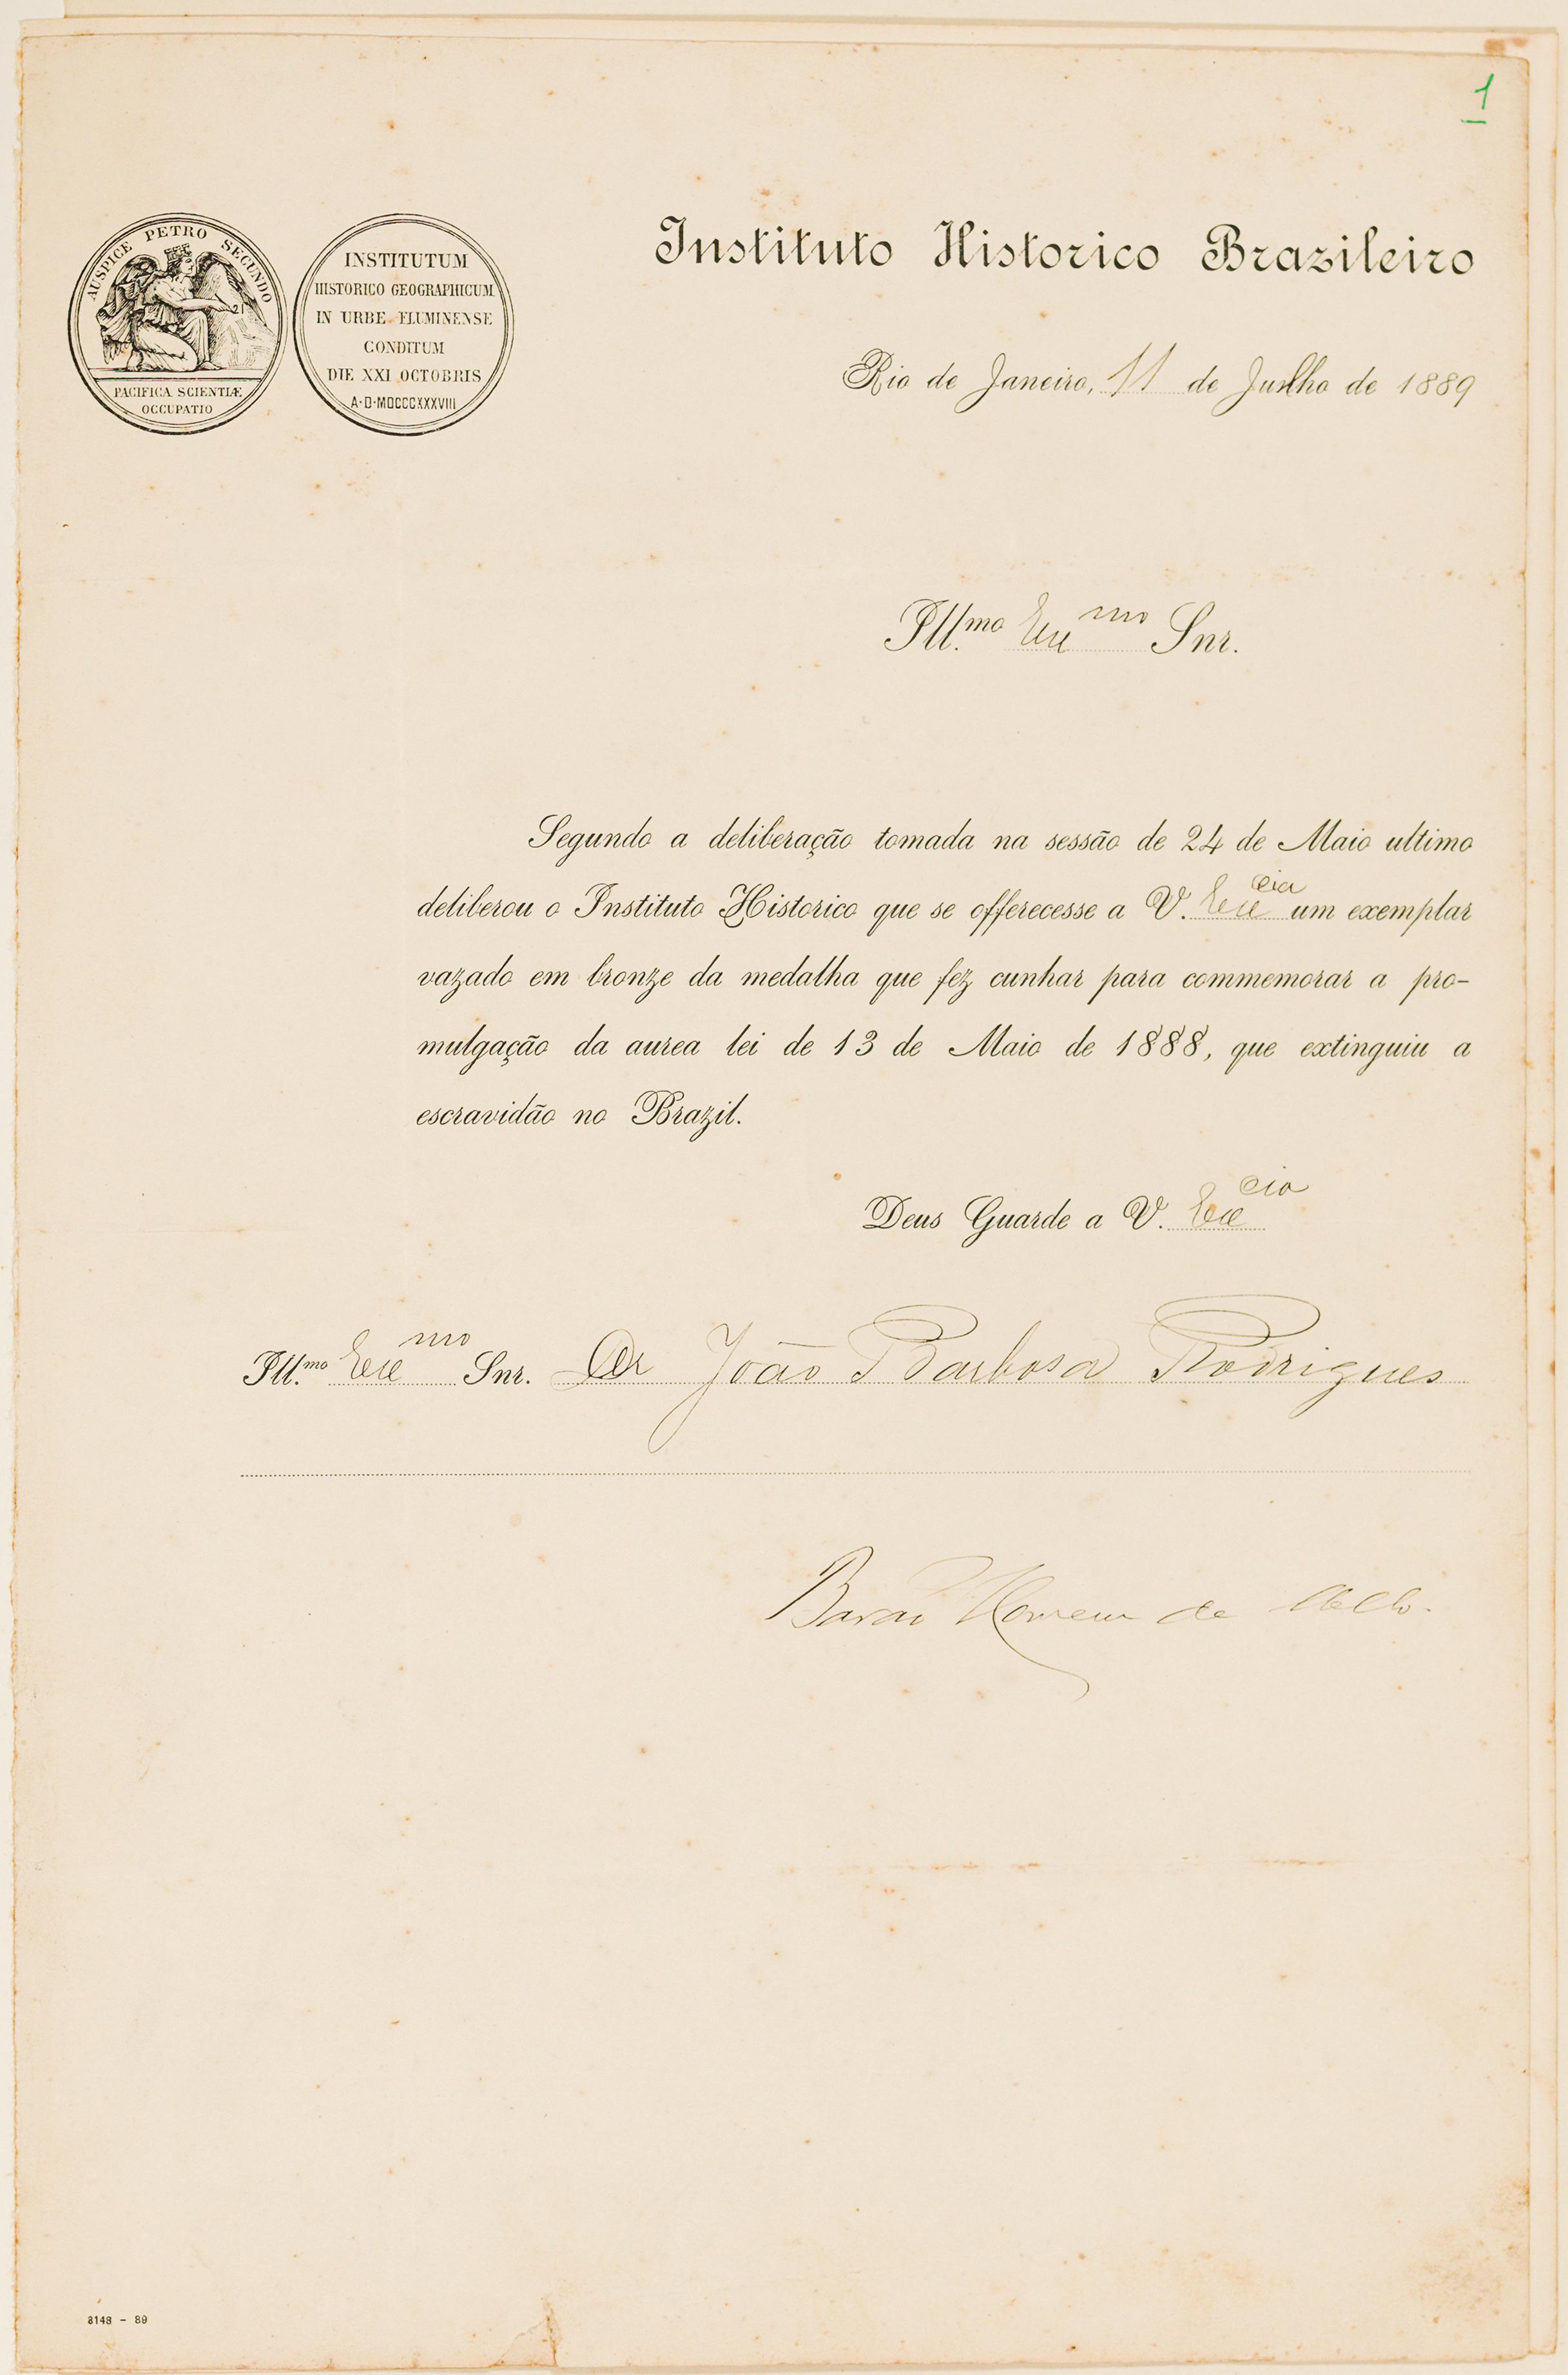 1
AUSPICE PETRO SECUNDO
PACIFICA SCIENTIÆ
OCCUPATIO
INSTITUTUM
HISTORICO GEOGRAPHICUM
IN URBE FLUMINENSE
CONDITUM
DIE XXI OCTOBRIS
A·D·MDCCCXXXVIII
Instituto Historico Brazileiro
Rio de Janeiro, 11 de Julho de 1889
Ill.mo Exc mo Snr.
Segundo a deliberação tomada na sessão de 24 de Maio ultimo
deliberou o Instituto Historico que se offerecesse a V. Exc cia um exemplar
vazado em bronze da medalha que fez cunhar para commemorar a pro-
mulgação da aurea lei de 13 de Maio de 1888, que extinguiu a
escravidão no Brazil.
Deus Guarde a V. Exc cia
Ill.mo Exc mo Snr. Dr João Barbosa Rodrigues
Barão Homem de Mello.
8148 - 89